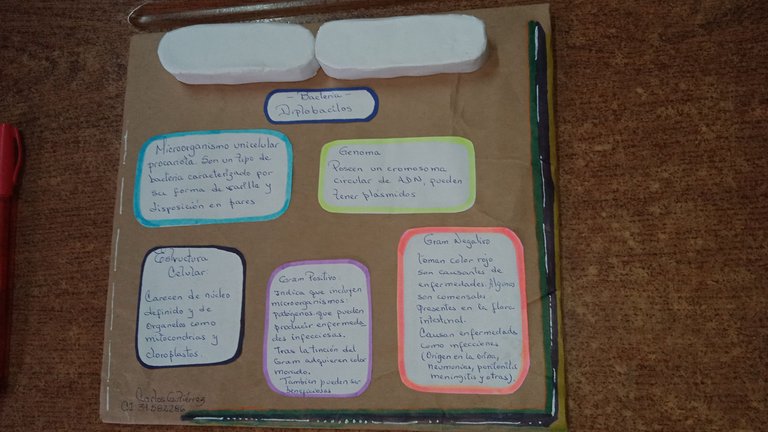 - Bacteria -
Diplobacilos
Microorganismo unicelular
procariota. Son un tipo de
bacteria caracterizado por
su forma de varilla y
disposición en pares
Genoma
Poseen un cromosoma
circular de ADN, pueden
tener plásmidos
Estructora
Celular
Carecen de núcleo
definido y de
organelos como
mitocondrias y
cloroplastos.
Gram Positivo:
Indica que incluyen
microorganismos:
patógenos que pueden
producir enfermeda
des infecciosas.
Tras la tinción del
Gram adquieren color
morado.
También pueden ser
beneficiosas
Gram Negativo
toman color rojo
son causantes de
enfermedades. Algunos
son comensales
presentes en la flora
intestinal.
Causan enfermedades
como infecciones
(Origen en la orina,
neumonías, peritonitis
meningitis y otras).
Carlos Gutiérrez
CI 31582286